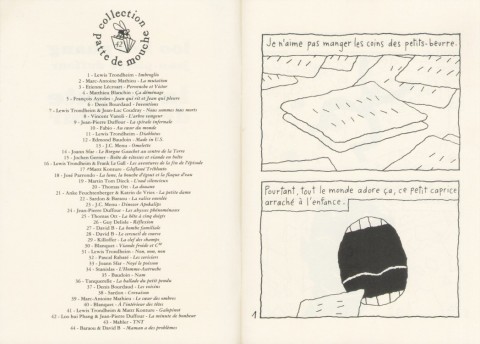 collection
patte de mouche
1 - Lewis Trondheim - Imbroglio
2 - Marc-Antoine Mathieu - La mutation
3 - Etienne Lécroart - Pervenche et Victor
4 - Matthieu Blanchin - Ça déménage
5 - François Ayroles - Jean qui rit et Jean qui pleure
6 - Denis Bourdaud - Inventions
7 - Lewis Trondheim & Jean-Luc Coudray - Nous sommes tous morts
8 - Vincent Vanoli - L'arbre vengeur
9 - Jean-Pierre Duffour - La spirale infernale
10 - Fabio - Au cœur du monde
11 - Lewis Trondheim - Diablotus
12 - Edmond Baudoin - Made in U.S.
13 - J.C. Menu - Omelette
14 - Joann Sfar - Le Borgne Gauchet au centre de la Terre
15 - Jochen Gerner -
16 - Lewis Trondheim & Frank Le Gall - Les aventures de la fin de l'épisode
17 - Matt Konture - Glofland Trèblante
18 - José Parrondo - La lune, la bouche d'égout et la flaque d'eau
19 - Martin Tom Dieck - L'oud silencieux
20 - Thomas Ott - La douane
21 - Anke Feuchtenberger & Katrin de Vries - La petite dame
22 - Sardon & Baraou - La valise entêtée
23 - J.C. Menu - Dinozor Apokalips
24 - Jean-Pierre Duffour - Les abysses phénoménaux
25 - Thomas Ott - La bête à cinq doigts
26 - Guy Delisle - Réflexion
27 - David B - La bombe familiale
28 - David B - Le cercueil de course
29 - Killoffer - La clef des champs
30 - Blanquet - Viande froide et Cie
31 - Lewis Trondheim - Non, non, non
32 - Pascal Rabaté - Les cerisiers
33 - Joann Sfar - Noyé le poisson
34 - Stanislas - L'Homme-Autruche
35 - Baudoin - Nam
36 - Tanquerelle - La ballade du petit pendu
37 - Denis Bourdaud - Les voisins
38 - Sardon - Crevaison
39 - Marc-Antoine Mathieu - Le cœur des ombres
40 - Blanquet - À l'intérieur des têtes
41 - Lewis Trondheim & Matt Konture - Galopinot
42 - Loo hui Phang & Jean-Pierre Duffour - La minute de bonheur
43 - Mahler - TNT
44 - Baraou & David B - Maman a des problèmes
Je n'aime pas manger les coins des petits-beurre.
Pourtant, tout le monde adore ça, ce petit caprice
arraché à l'enfance.
1